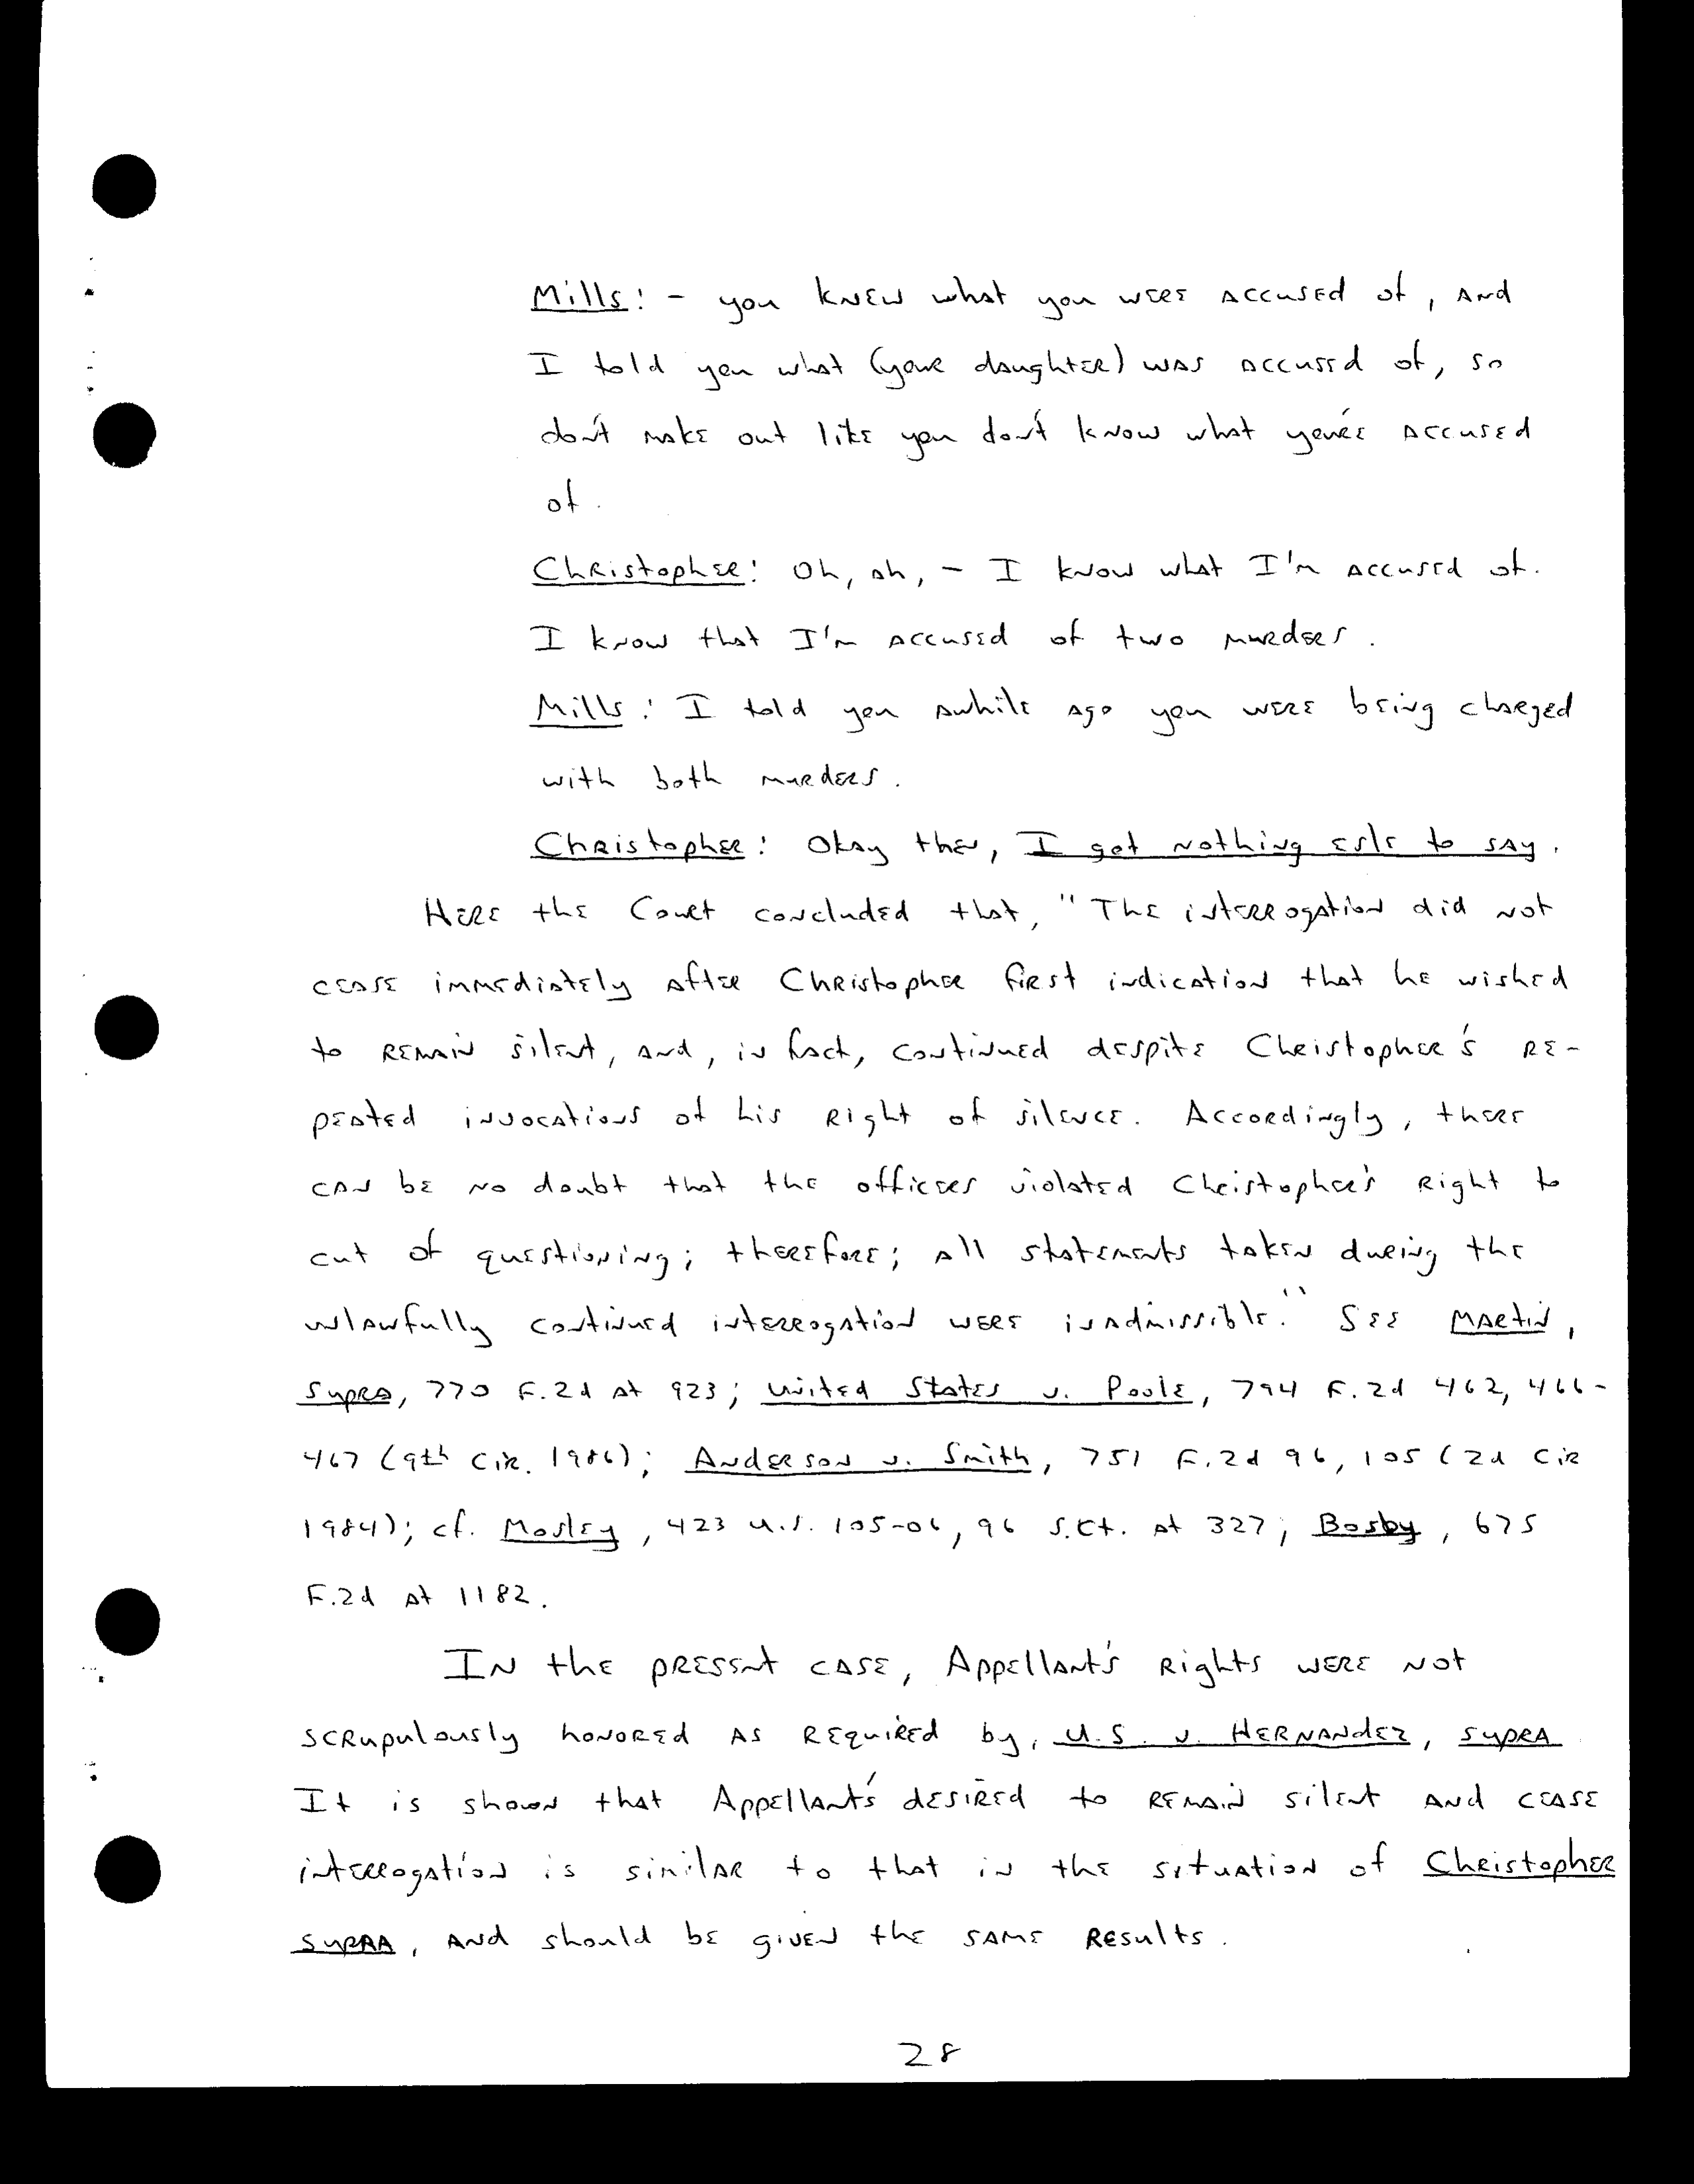 Mills: - you knew what you were accused of, and
I told you what (your daughter) was accused of, so
don't make out like you don't know what you're accused
of.
Christopher: Oh, ah, - I know what I'm accused of.
I know that I'm accused of two murders.
Mills: I told you awhile ago you were being charged
with both murders.
Christopher: Okay then, I got nothing esle to say.
Here the Court concluded that, "The interrogation did not
cease immediately after Christopher first indication that he wished
to remain silent, and, in fact, continued despite Christopher's re-
peated invocations of his right of silence. Accordingly, there
can be no doubt that the officers violated Christopher's right to
cut of questioning; therefore; all statements taken during the
unlawfully continued interrogation were inadmissible." See Martin,
supra, 770 F.2d at 923; United States v. Poole, 794 F.2d 462, 466-
467 (9th Cir. 1986); Anderson v. Smith, 751 F.2d 96, 105 (2d Cir
1984); cf. Mosley, 423 U.S. 105-06, 96 S.Ct. at 327; Bosby, 675
F.2d at 1182.
In the present case, Appellant's rights were not
scrupulously honored as required by, U.S. v. Hernandez, supra
It is shown that Appellant's desired to remain silent and cease
interrogation is similar to that in the situation of Christopher
supra, and should be given the same results.
28